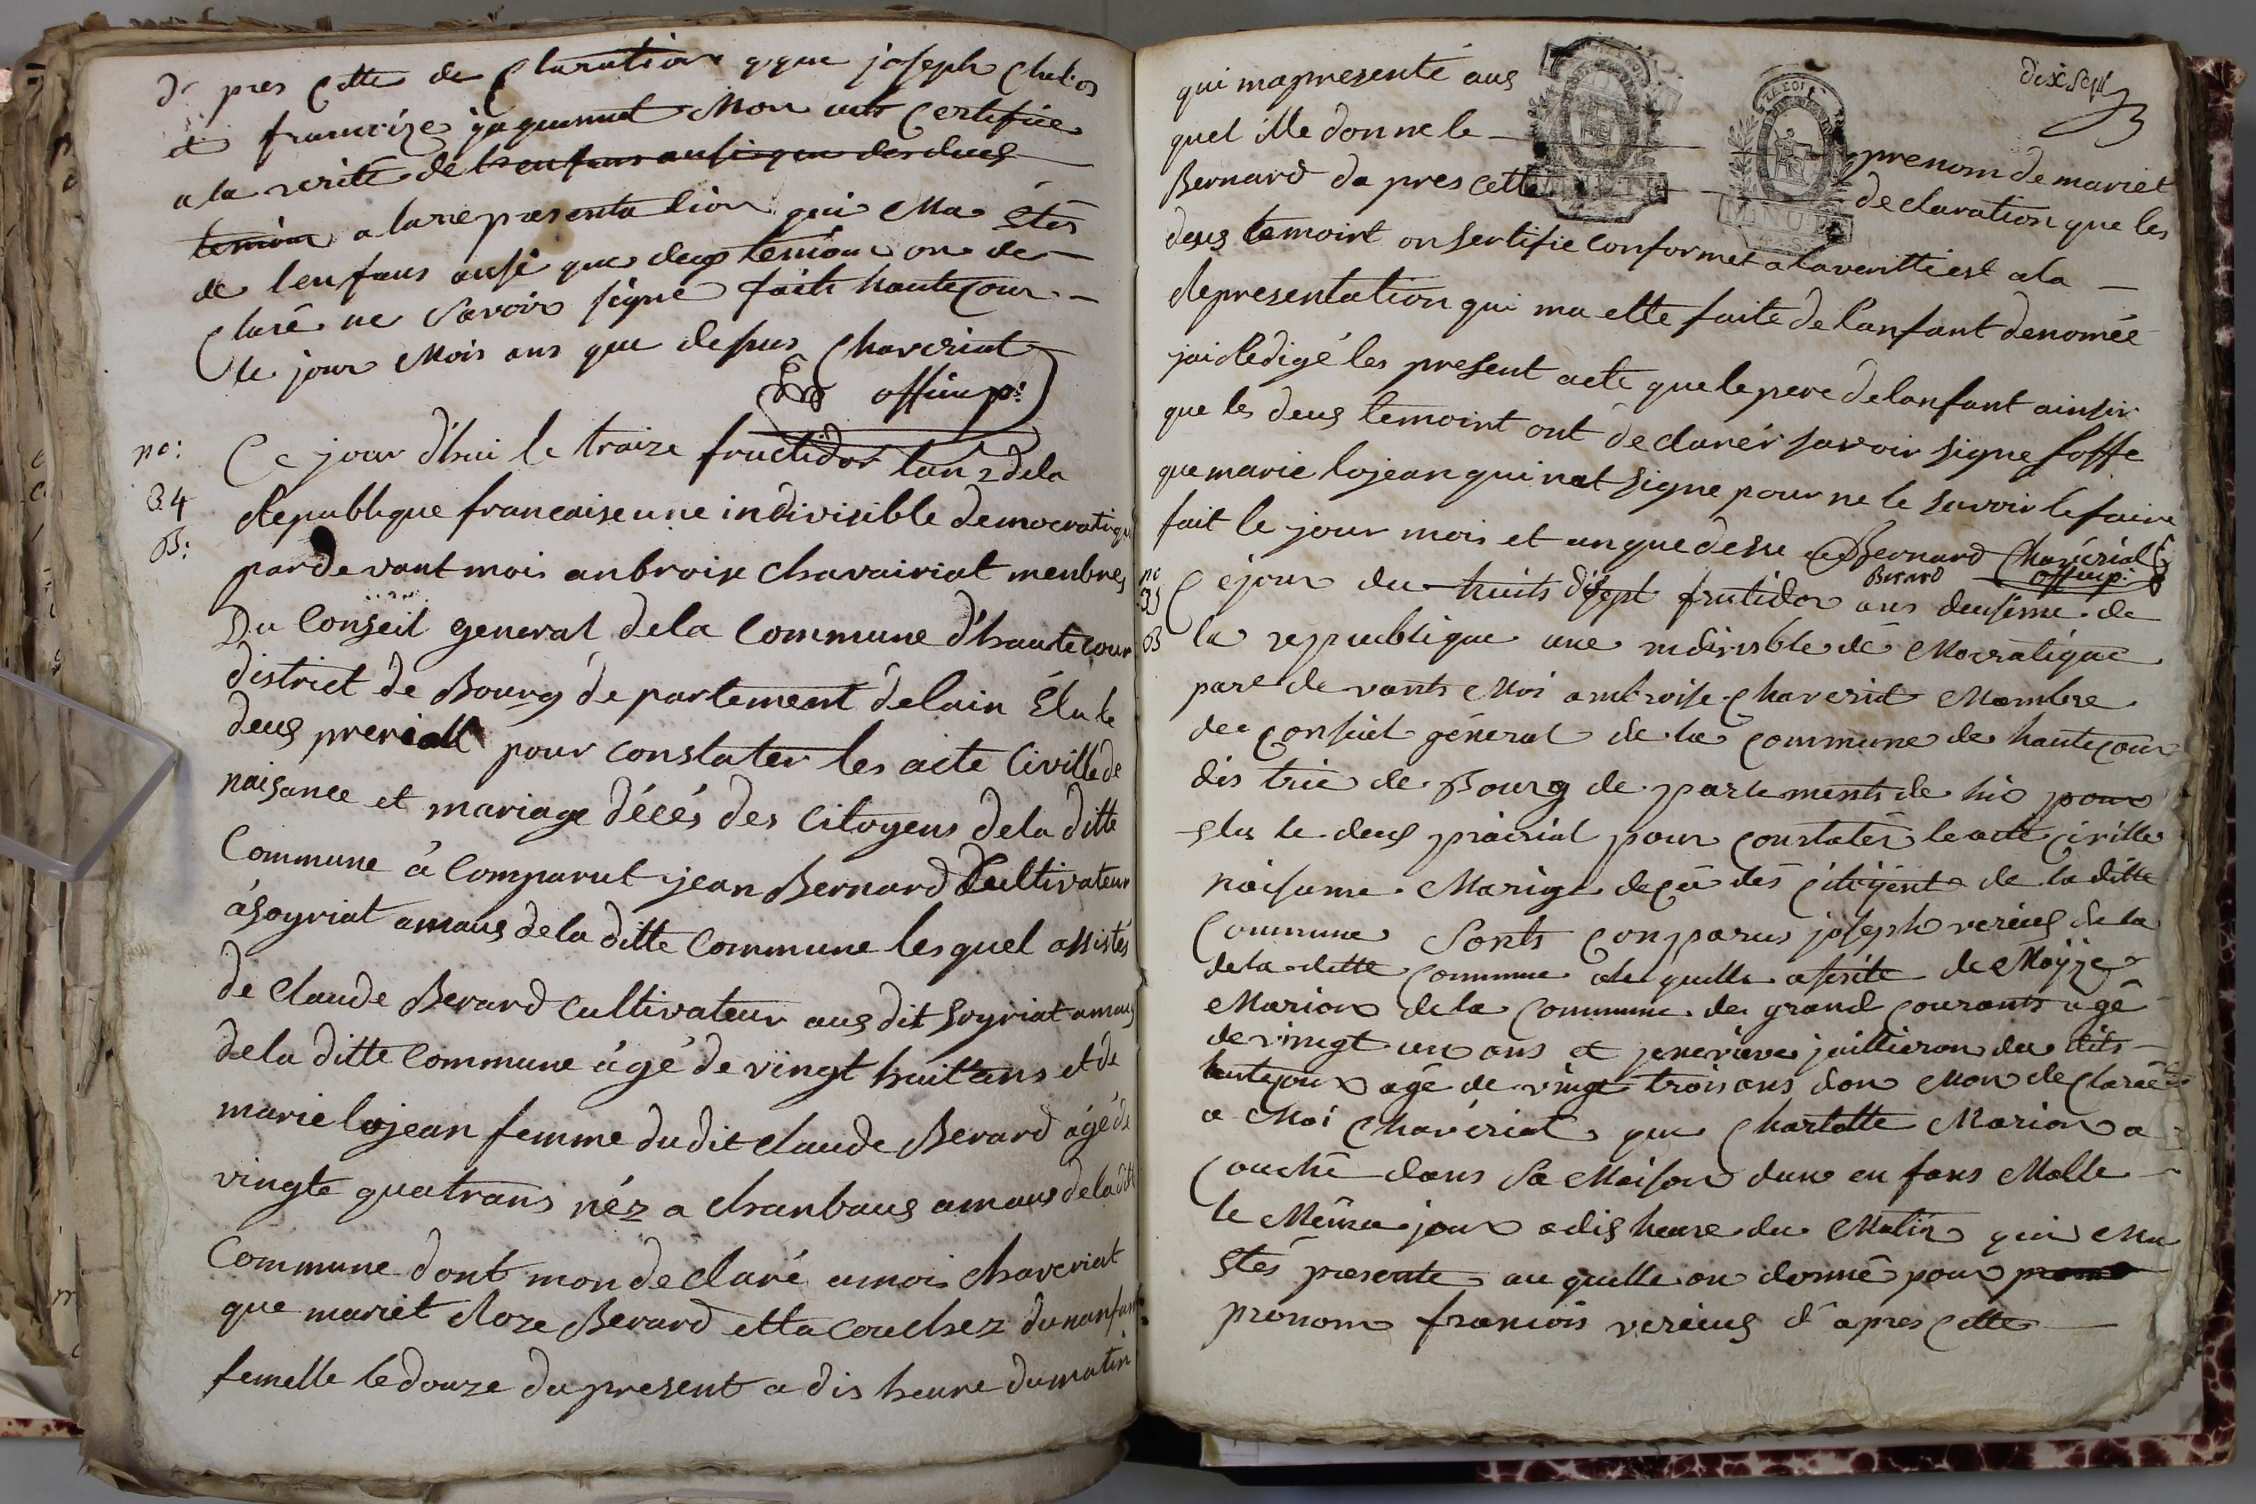 d'pres cette de claration que joseph Chal
et francoize jaquemet Mon cert certifiée
a la verité de lenfans ausi que des deus
temoin a la representation qui Ma étés
de lenfans ausi que deux temoin on de
claré ne Savoir signé faite hautecour
le jour Mois ans que desus Chaveriat
offi p:
no: Ce jour d'hui le traize fructidor lan 2 dela
34 Republique francaise une indivisible democratiqu
B: parde vant mois anbroise chavairiat menbres
Du Conseil general dela Commune d'hautecour
district de Bourg de partement delain Elu le
deus preriall pour constater les acte Civille de
naisance et mariage décés des Citoyens dela ditte
Commune á Comparut jean Bernard Cultivateur
á Soyriat amaus dela ditte Commune les quel assistés
de Claude Berard Cultivateur aus dit Soyriat amaus
dela ditte Commune ágé de vingt huit ans et de
marie lojean femme dudit Claude Berard ágé de
vingte quatrans néz a chanbaus amaus dela ditt
Commune dont mon declaré amois chaveriat
que mariet Roze Berard etta Couchez dunanfant
femelle le douze du present a dis heure dumatin
dix sept
qui mapresenté aus
quel ille donne le prenom de mariet
Bernard da pres cette declaration que les
deus temoint on sertifie conformet a laveritti est ala
Representation qui ma ette faite de lanfant denomée
jai Redigé les present acte que le pere de lanfant ainsir
que les deus temoint ont declarér savoir signe soffe
que marie lojean qui nat signe pour ne le savoir le faire
fait le jour mois et an que desu Bernard Chavérial
Berard offi p:
no Ce jour du huits disept frutidor ans deusieme de
35 la republique une indivisble dé Mocratique
B pare de vants Moi ambroise chaveriat Membre
du Consiel géneral de la Commune de hautecour
dis tric de Bourg de partements de hin pour
elus le deus prairial pour Constatér le acte Civille
naisanse Mariage decé des Citoÿent de la ditte
Commune Sonts Comparus joseph vereus de la
dela ditte Commune alequelle asisite de Moÿze
Marion de la Commune de grand Courants agé
de vingt un ans et jenevieve juillieron du dits
hautecour agé de vingt trois ans don Mon declarée
a Moi Chavériat que Charlotte Marion a
Couché dans sa Maison dun en fans Malle
le Même jour a dis heure du Matin qui Ma
Etés presente au quelle on donné pour prenom
prenom francois vereus d'apres Cette